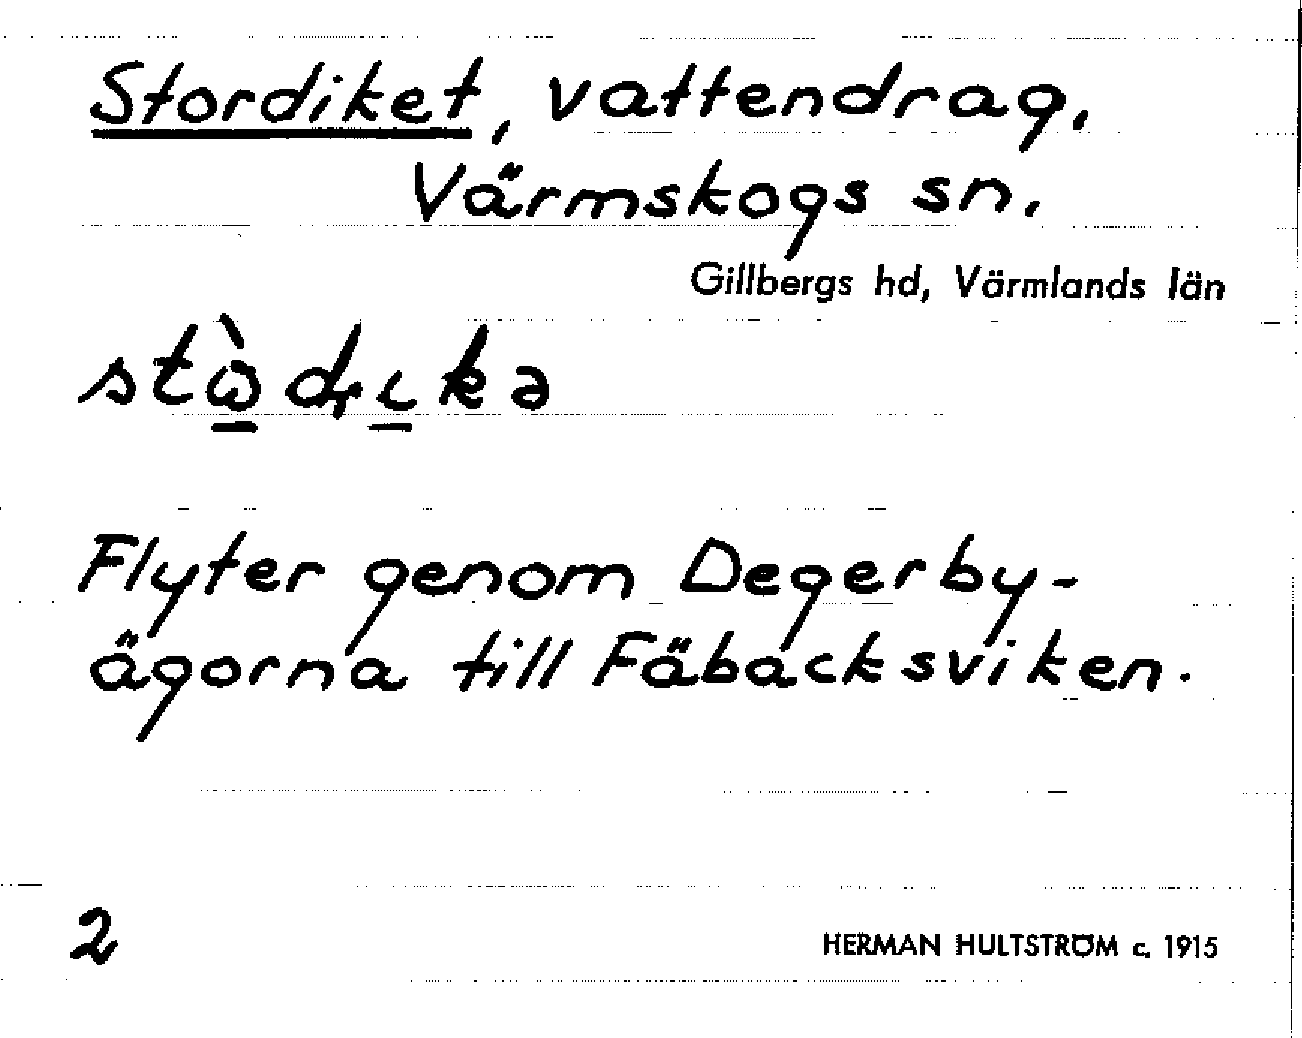 Stordiket, vattendrag.
Värmskogs sn.
Gillbergs hd, Värmlands län
Flyter genom Degerby-
ägorna till Fäbacksviken.
2
HERMAN HULTSTRÖM c. 1915